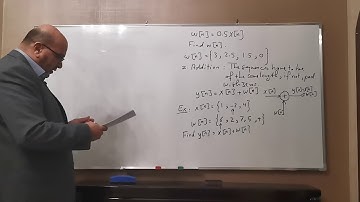 w[n] = 0.5 x[n]
Find w[n].
w[n] = {3, 2.5, 1.5, 0}
= Addition : The sequences have to be
of the same length, if not, pad
with zeros
y[n] = x[n] + w[n]
x[n]
+
w[n]
Ex: x[n] = {1, -2, 4}
w[n] = {6, 2, 7, 5, 9}
Find y[n] = x[n] + w[n]